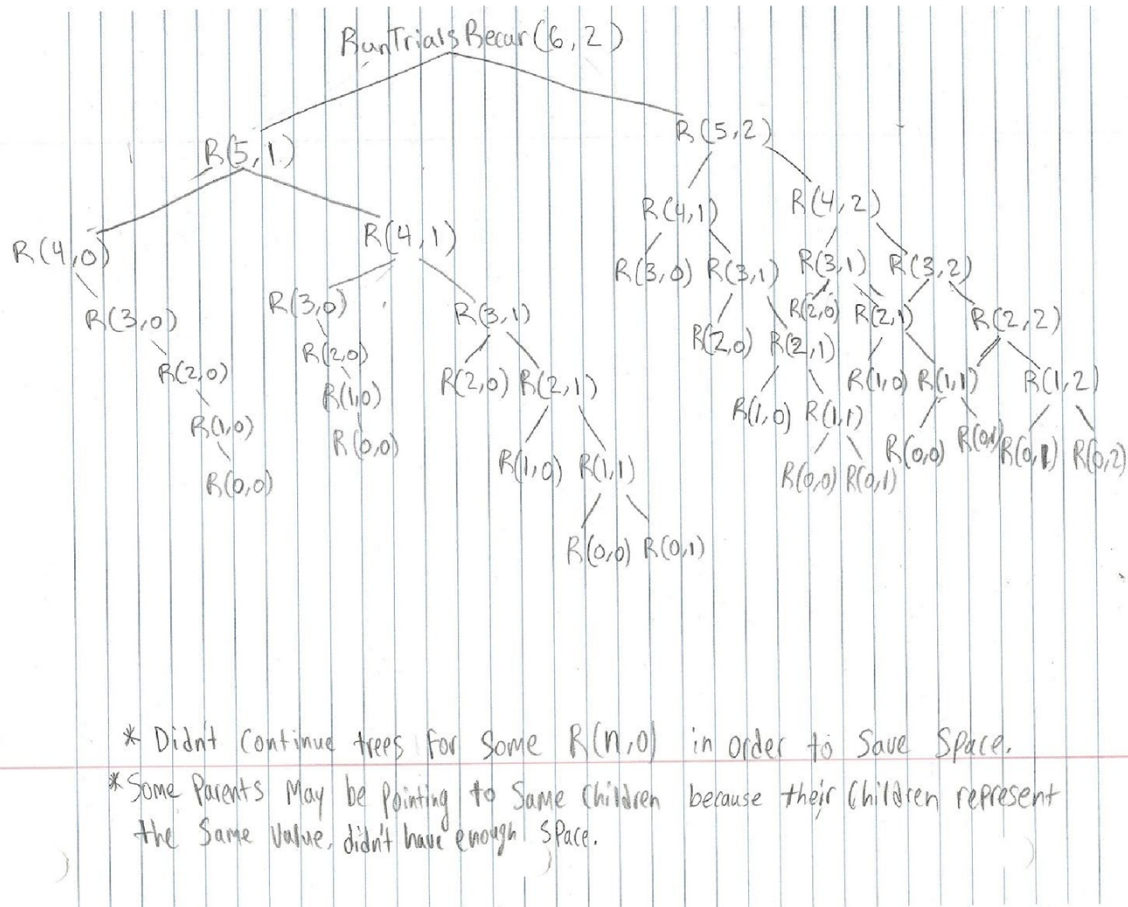 RunTrialsRecur(6,2)
R(5,1) R(5,2)
R(4,0) R(4,1) R(4,1) R(4,2)
R(3,0) R(3,0) R(3,1) R(3,0) R(3,1) R(3,1) R(3,2)
R(2,0) R(2,0) R(2,0) R(2,1) R(2,0) R(2,1) R(2,0) R(2,1) R(2,2)
R(1,0) R(1,0) R(1,0) R(1,1) R(1,0) R(1,1) R(1,0) R(1,1) R(1,2)
R(0,0) R(0,0) R(0,0) R(0,1) R(0,0) R(0,1) R(0,0) R(0,1) R(0,1) R(0,2)
* Didn't continue trees for some R(n,0) in order to save space.
* Some Parents May be pointing to same children because their children represent
the same value, didn't have enough space.